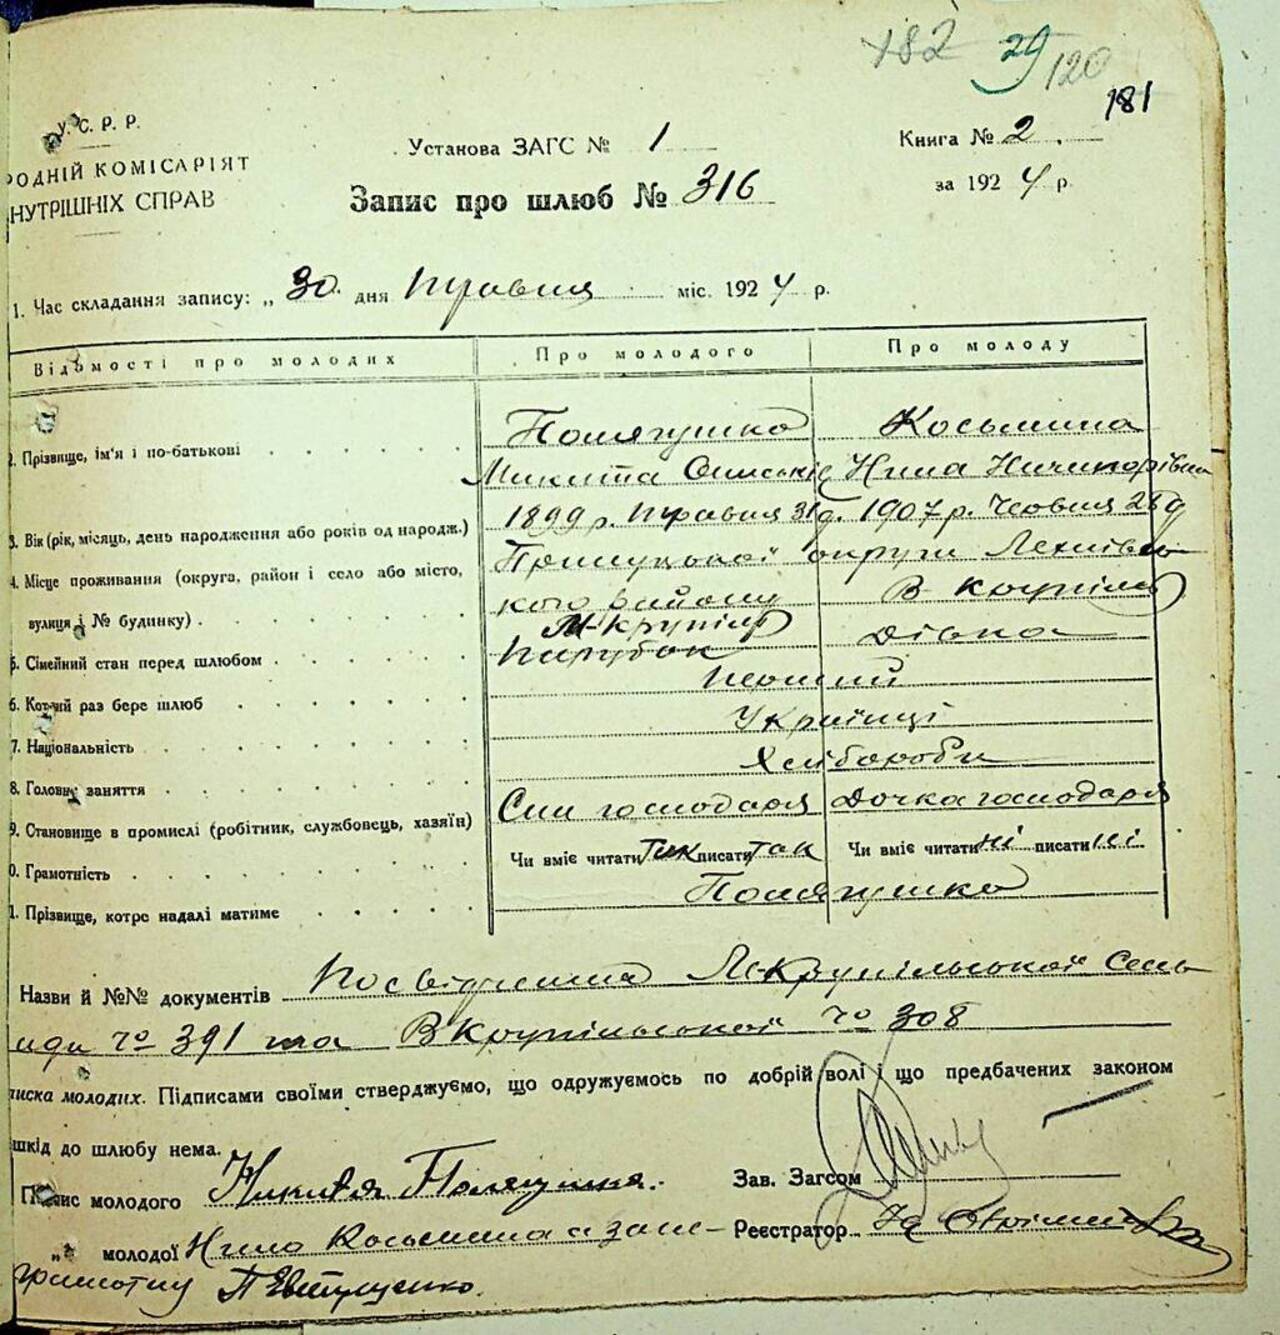 182 29 120
181
У. С. Р. Р.
РОДНІЙ КОМІСАРІЯТ
НУТРІШНІХ СПРАВ
Установа ЗАГС № 1
Книга № 2.
Запис про шлюб № 316
за 1924 р.
1. Час складання запису: „ 30. дня травня міс. 1924 р.
Відомості про молодих Про молодого Про молоду
2. Прізвище, ім'я і по-батькові Помягушко Косьмина
Микита Нина Ничипорівна
3. Вік (рік, місяць, день народження або років од народж.) 1899 р. травня 31 д. 1907 р. Червня 28 д
4. Місце проживання (округа, район і село або місто, Прилуцької округи Лехнівсь
вулиця і № будинку) кого району В Крупіль
М-Крупіль
5. Сімейний стан перед шлюбом парубок дівка
6. Котрий раз бере шлюб перший
7. Національність Українці
8. Головне заняття Хлібороби
9. Становище в промислі (робітник, службовець, хазяїн) Син господаря Дочка господаря
0. Грамотність Чи вміє читати так писати так Чи вміє читати ні писати ні
1. Прізвище, котре надалі матиме Помягушко
Назви й №№ документів Посвідчення М-Крупільської Сель
ради № 391 та В Крупільської № 308
писка молодих. Підписами своїми стверджуємо, що одружуємось по добрій волі і що предбачених законом
шкід до шлюбу нема.
Підпис молодого Никита Помягушко. Зав. Загсом
„ молодої Нина Косьмина а за не- Реєстратор
грамотну П Євтушенко.